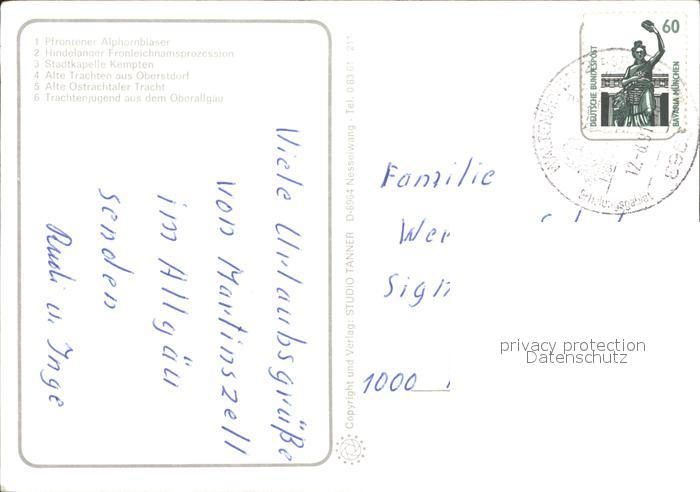 1 Pfrontener Alphornbläser
2 Hindelanger Fronleichnamsprozession
3 Stadtkapelle Kempten
4 Alte Trachten aus Oberstdorf
5 Alte Ostrachtaler Tracht
6 Trachtenjugend aus dem Oberallgäu
Viele Urlaubsgrüße
von Martinszell
im Allgäu
senden
Rudi u. Inge
Copyright und Verlag: STUDIO TANNER D-8964 Nesselwang - Tel. 0 83 61
60
DEUTSCHE BUNDESPOST
BAVARIA MÜNCHEN
Erholungsgebiet
Familie
1000
privacy protection
Datenschutz